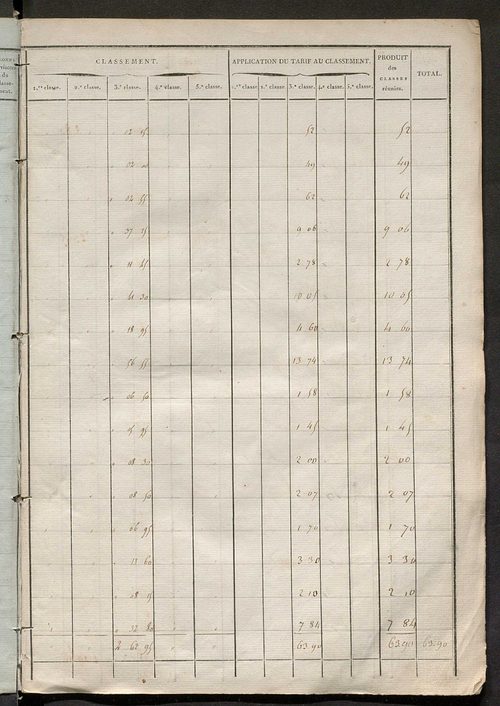 CLASSEMENT. APPLICATION DU TARIF AU CLASSEMENT. PRODUIT des CLASSES réunies. TOTAL.
1.re classe. 2.e classe. 3.e classe. 4.e classe. 5.e classe. 1.re classe 2.e classe. 3.e classe. 4.e classe. 5.e classe.
52 52
49 49
62 62
9 06 9 06
2 78 2 78
41 30 10 05 10 05
18 95 4 60 4 60
56 55 13 74 13 74
06 50 1 58 1 58
05 95 1 45 1 45
08 30 2 00 2 00
08 50 2 07 2 07
06 95 1 70 1 70
13 60 3 30 3 30
2 10 2 10
32 80 7 84 7 84
2 62 95 63.90 63.90 63.90